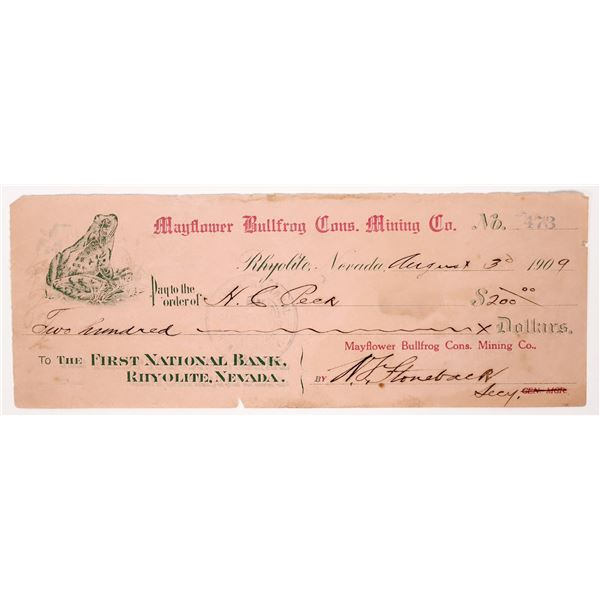 Mayflower Bullfrog Cons. Mining Co. No. 473
Rhyolite, Nevada August 3d 1909
Pay to the order of H. C. Peck $200 00
Two hundred x Dollars.
Mayflower Bullfrog Cons. Mining Co.,
TO THE FIRST NATIONAL BANK,
RHYOLITE, NEVADA.
BY Stoneback
Secy. GEN. MGR.